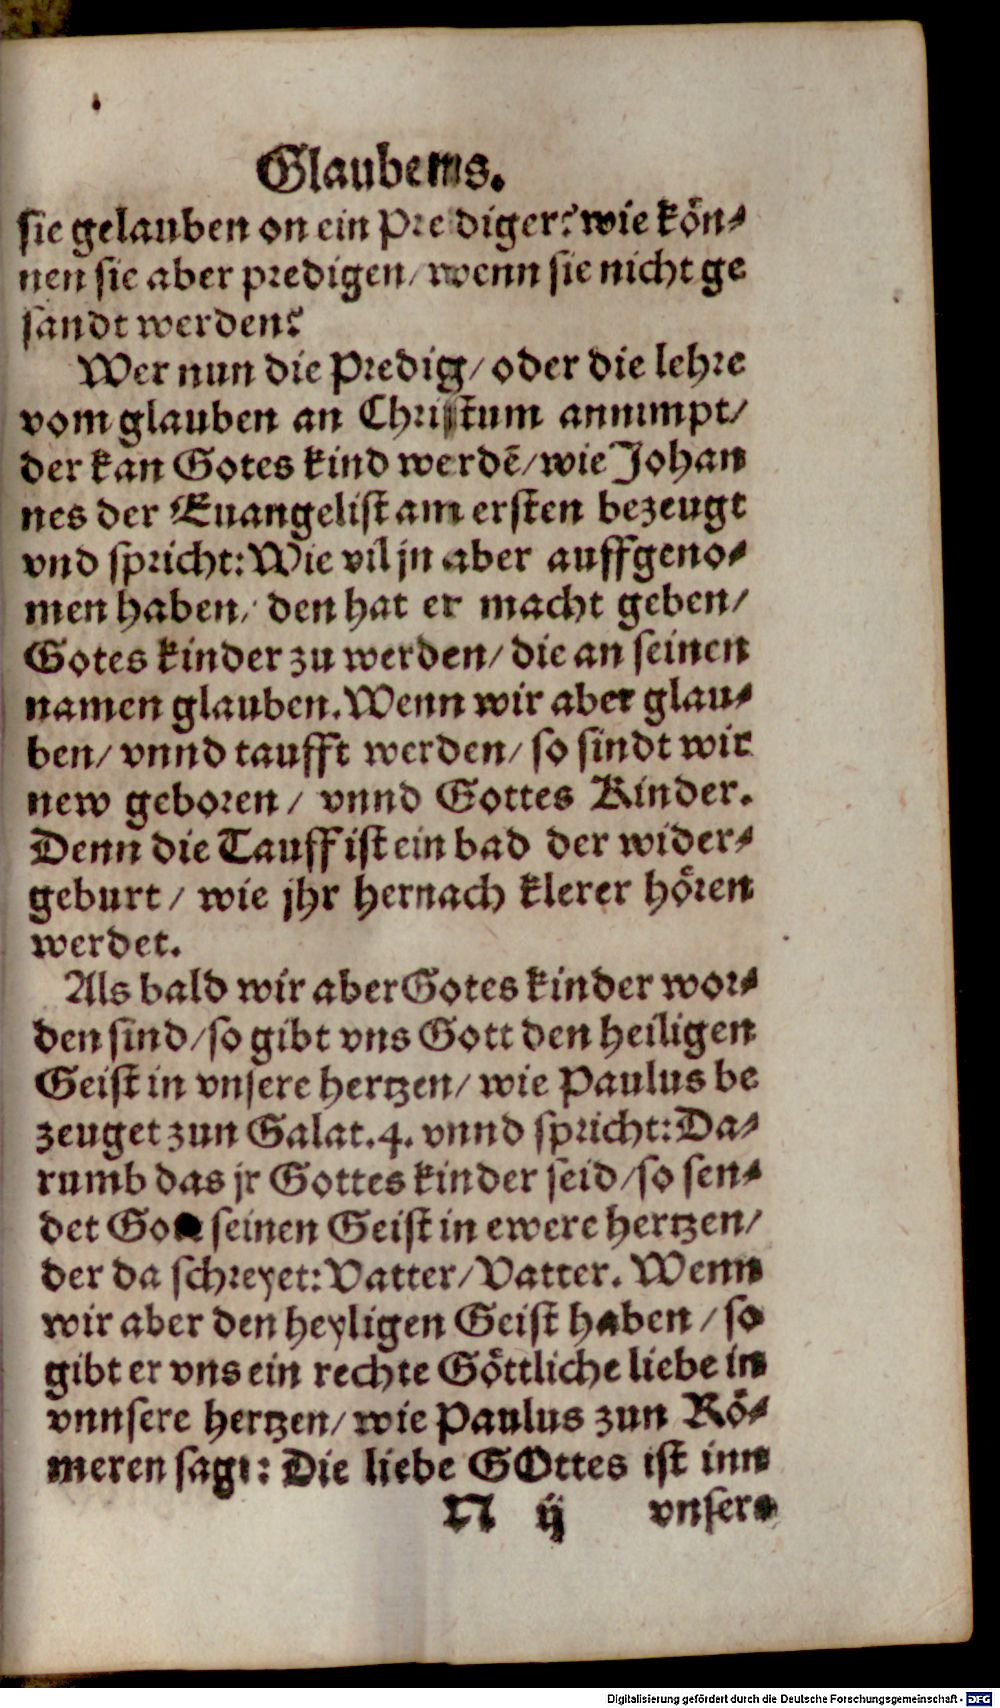 Glaubens.
sie gelauben on ein Prediger? wie kön⸗
nen sie aber predigen/ wenn sie nicht ge
sandt werden?
Wer nun die Predig/ oder die lehre
vom glauben an Christum annimpt/
der kan Gotes kind werdē/ wie Johan
nes der Euangelist am ersten bezeugt
vnd spricht: Wie vil jn aber auffgeno⸗
men haben/ den hat er macht geben/
Gotes kinder zu werden/ die an seinen
namen glauben. Wenn wir aber glau⸗
ben/ vnnd taufft werden/ so sindt wir
new geboren/ vnnd Gottes Kinder.
Denn die Tauff ist ein bad der wider⸗
geburt/ wie jhr hernach klerer hören
werdet.
Als bald wir aber Gotes kinder wor⸗
den sind/ so gibt vns Gott den heiligen
Geist in vnsere hertzen/ wie Paulus be
zeuget zun Galat. 4. vnnd spricht: Da⸗
rumb das jr Gottes kinder seid/ so sen⸗
det Gott seinen Geist in ewere hertzen/
der da schreyet: Vatter/ Vatter. Wenn
wir aber den heyligen Geist haben/ so
gibt er vns ein rechte Göttliche liebe in
vnnsere hertzen/ wie Paulus zun Rö⸗
meren sagt: Die liebe GOttes ist inn
N ij vnser⸗
Digitalisierung gefördert durch die Deutsche Forschungsgemeinschaft - DFG